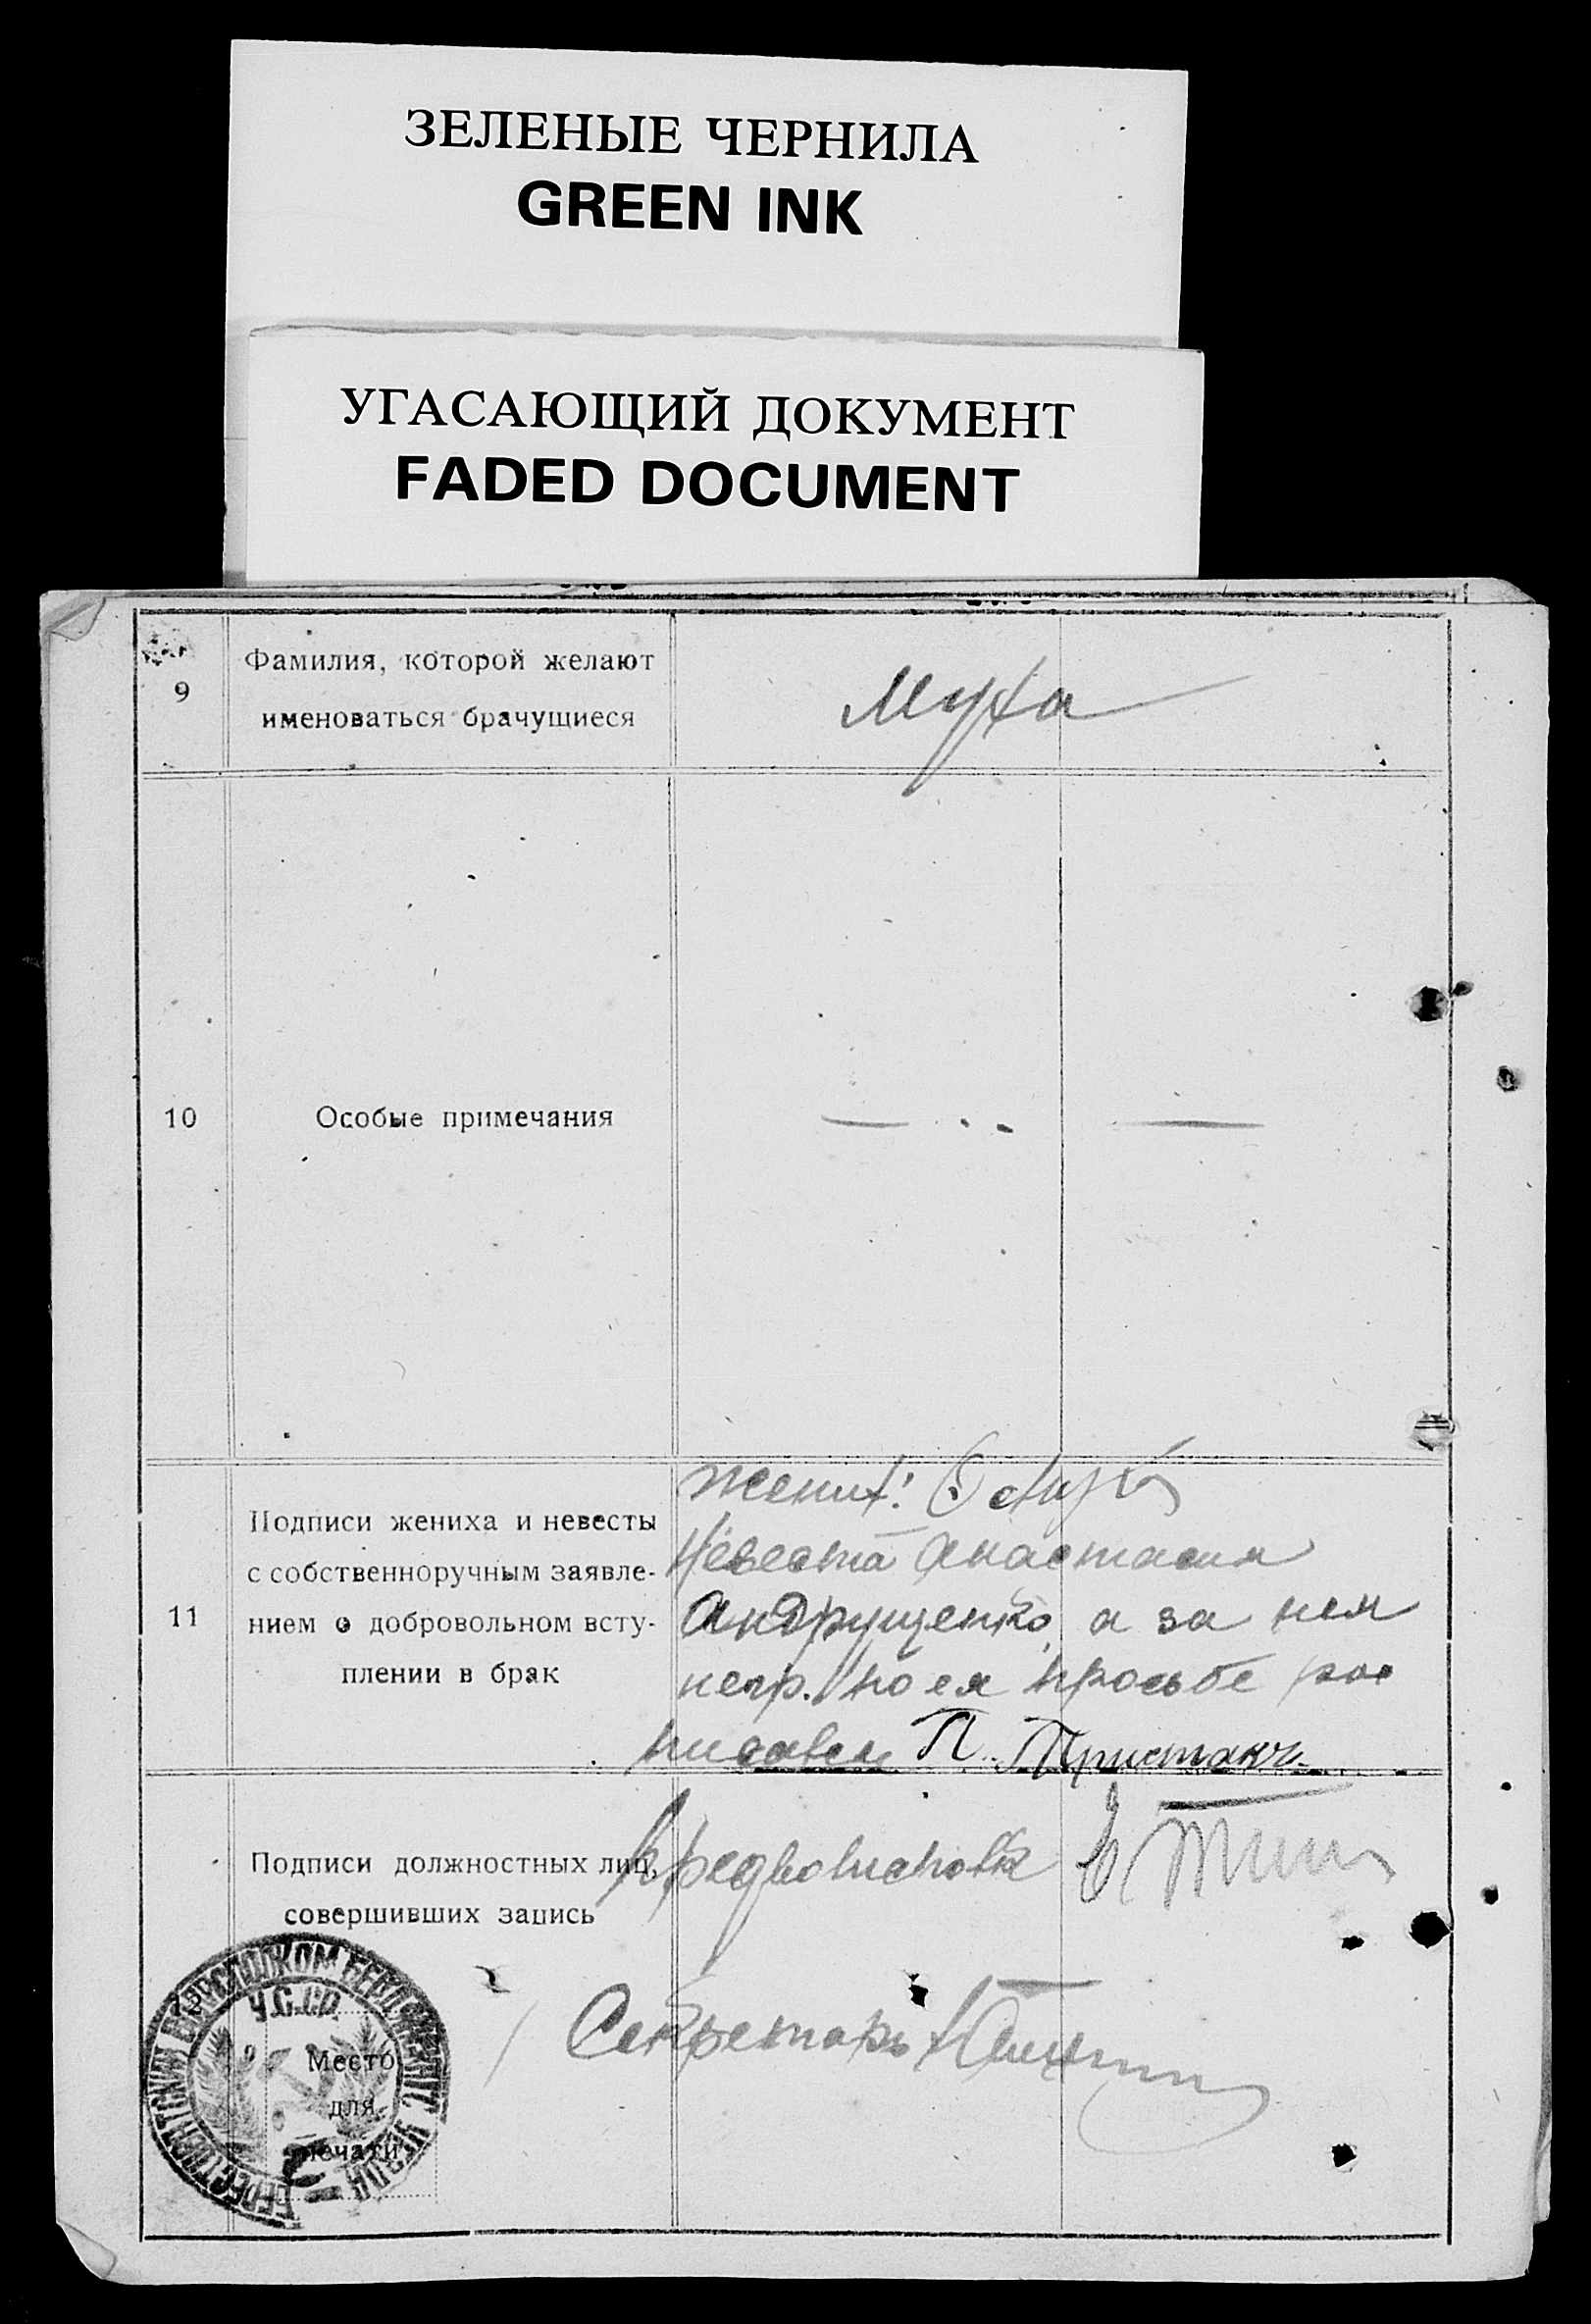 ЗЕЛЕНЫЕ ЧЕРНИЛА
GREEN INK
УГАСАЮЩИЙ ДОКУМЕНТ
FADED DOCUMENT
9
Фамилия, которой желают
именоваться брачущиеся
Муха
10
Особые примечания
11
Подписи жениха и невесты
с собственноручным заявле-
нием о добровольном всту-
плении в брак
Жених:
Невеста Анастасия
Андрущенко, а за нея
негр. по ея просьбе рос
писався П. Пристакч.
Подписи должностных лиц,
совершивших запись
Предволисполк
Секретарь
У.С.С.Р.
Место
для
печати